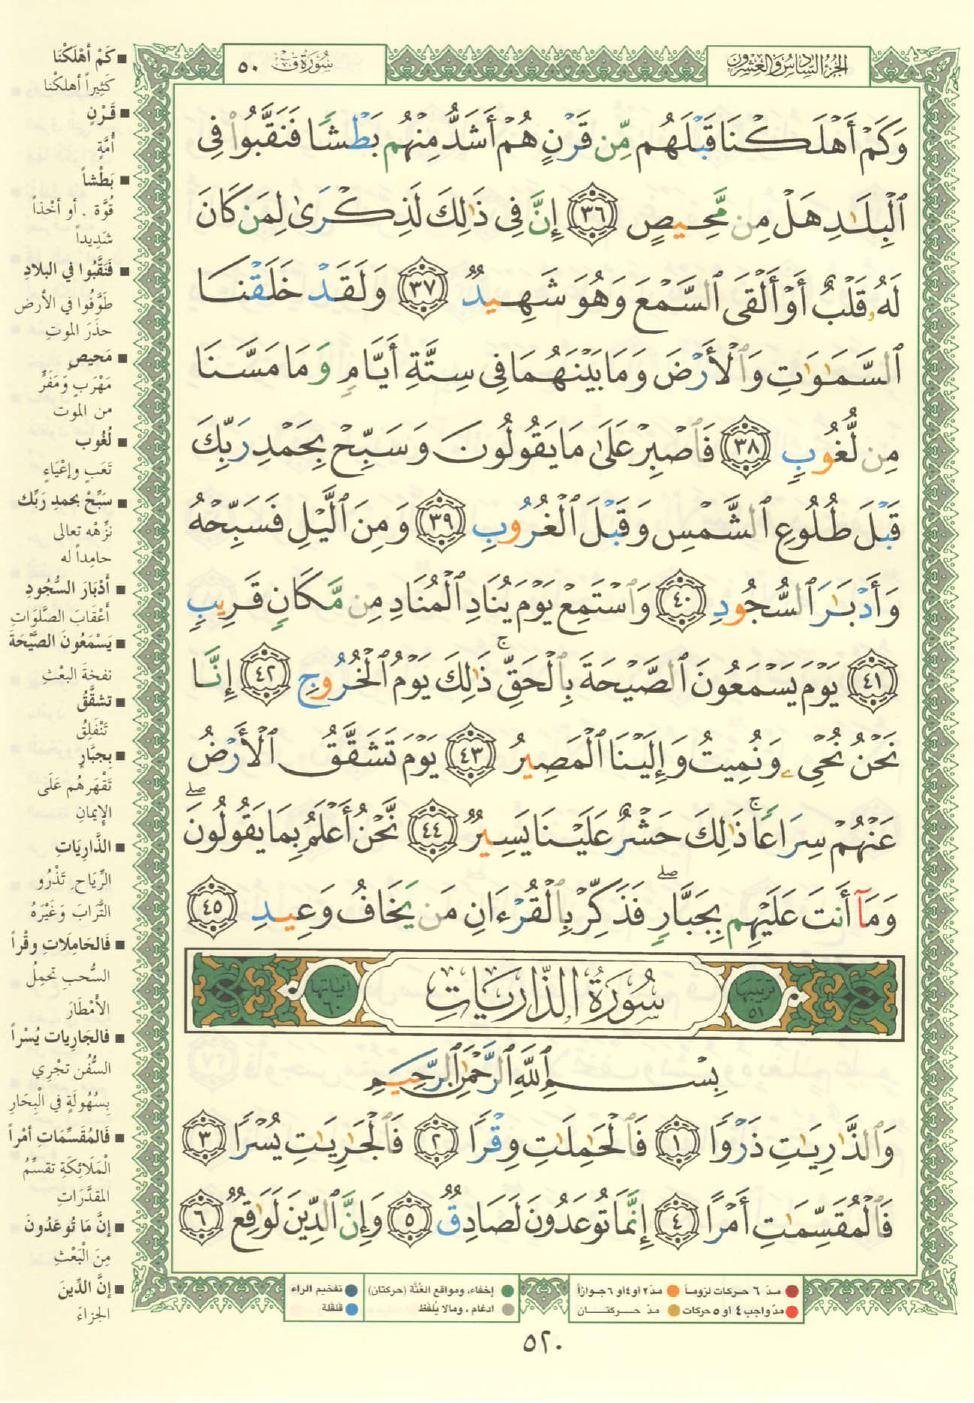 الجزء السادس والعشرون
سورة ق ٥٠
وَكَمْ أَهْلَكْنَا قَبْلَهُم مِّن قَرْنٍ هُمْ أَشَدُّ مِنْهُم بَطْشًا فَنَقَّبُوا۟ فِى
ٱلْبِلَـٰدِ هَلْ مِن مَّحِيصٍ ٣٦ إِنَّ فِى ذَٰلِكَ لَذِكْرَىٰ لِمَن كَانَ
لَهُۥ قَلْبٌ أَوْ أَلْقَى ٱلسَّمْعَ وَهُوَ شَهِيدٌ ٣٧ وَلَقَدْ خَلَقْنَا
ٱلسَّمَـٰوَٰتِ وَٱلْأَرْضَ وَمَا بَيْنَهُمَا فِى سِتَّةِ أَيَّامٍ وَمَا مَسَّنَا
مِن لُّغُوبٍ ٣٨ فَٱصْبِرْ عَلَىٰ مَا يَقُولُونَ وَسَبِّحْ بِحَمْدِ رَبِّكَ
قَبْلَ طُلُوعِ ٱلشَّمْسِ وَقَبْلَ ٱلْغُرُوبِ ٣٩ وَمِنَ ٱلَّيْلِ فَسَبِّحْهُ
وَأَدْبَـٰرَ ٱلسُّجُودِ ٤٠ وَٱسْتَمِعْ يَوْمَ يُنَادِ ٱلْمُنَادِ مِن مَّكَانٍ قَرِيبٍ
٤١ يَوْمَ يَسْمَعُونَ ٱلصَّيْحَةَ بِٱلْحَقِّ ۚ ذَٰلِكَ يَوْمُ ٱلْخُرُوجِ ٤٢ إِنَّا
نَحْنُ نُحْىِۦ وَنُمِيتُ وَإِلَيْنَا ٱلْمَصِيرُ ٤٣ يَوْمَ تَشَقَّقُ ٱلْأَرْضُ
عَنْهُمْ سِرَاعًا ۚ ذَٰلِكَ حَشْرٌ عَلَيْنَا يَسِيرٌ ٤٤ نَّحْنُ أَعْلَمُ بِمَا يَقُولُونَ ۖ
وَمَآ أَنتَ عَلَيْهِم بِجَبَّارٍ ۖ فَذَكِّرْ بِٱلْقُرْءَانِ مَن يَخَافُ وَعِيدِ ٤٥
ترتيبها ٥١ سُورَةُ الذَّارِيَاتِ آياتها ٦٠
بِسْمِ ٱللَّهِ ٱلرَّحْمَـٰنِ ٱلرَّحِيمِ
وَٱلذَّٰرِيَـٰتِ ذَرْوًا ١ فَٱلْحَـٰمِلَـٰتِ وِقْرًا ٢ فَٱلْجَـٰرِيَـٰتِ يُسْرًا ٣
فَٱلْمُقَسِّمَـٰتِ أَمْرًا ٤ إِنَّمَا تُوعَدُونَ لَصَادِقٌ ٥ وَإِنَّ ٱلدِّينَ لَوَٰقِعٌ ٦
■ كَمْ أَهْلَكْنَا
كَثِيراً أهلكْنا
■ قَرْنٍ
أُمَّةٍ
■ بَطْشاً
قُوَّة . أو أخْذاً
شَدِيداً
■ فَنَقَّبُوا في البلادِ
طَوَّفُوا في الأرض
حذَرَ الموتِ
■ مَحيصٍ
مَهْرَبٍ وَمَفَرٍّ
من الموت
■ لُغُوب
تَعَبٍ وإعْيَاءٍ
■ سَبِّحْ بحمدِ رَبِّك
نَزِّهْه تعالى
حامِداً له
■ أدْبَارَ السُّجُودِ
أعْقَابَ الصَّلَوَاتِ
■ يَسْمَعُونَ الصَّيْحَةَ
نفخةَ البعْثِ
■ تشقَّقُ
تَنْفَلِقُ
■ بجبَّارٍ
تَقْهَرهُم عَلَى
الإيمانِ
■ الذَّارِيَاتِ
الرِّيَاح تَذْرُو
التُّرابَ وَغَيْرَهُ
■ فَالحَامِلَاتِ وِقْراً
السُّحبِ تحمِلُ
الأمْطَارَ
■ فالجَاريات يُسْراً
السُّفُن تَجْرِي
بِسُهُولَةٍ في الْبِحَارِ
■ فَالمُقَسِّمَاتِ أمْراً
الْمَلَائِكَةِ تقسِّمُ
المقدَّرَاتِ
■ إنَّ مَا تُوعَدُونَ
مِنَ الْبَعْثِ
■ إنَّ الدِّينَ
الجزاءَ
مدّ ٦ حركات لزوماً مدّ ٢ أو ٤ أو ٦ جوازاً إخفاء، ومواقع الغُنَّة (حركتان) تفخيم الراء
مدّ واجب ٤ أو ٥ حركات مدّ حركتان ادغام، ومالا يُلفَظ قلقلة
٥٢٠